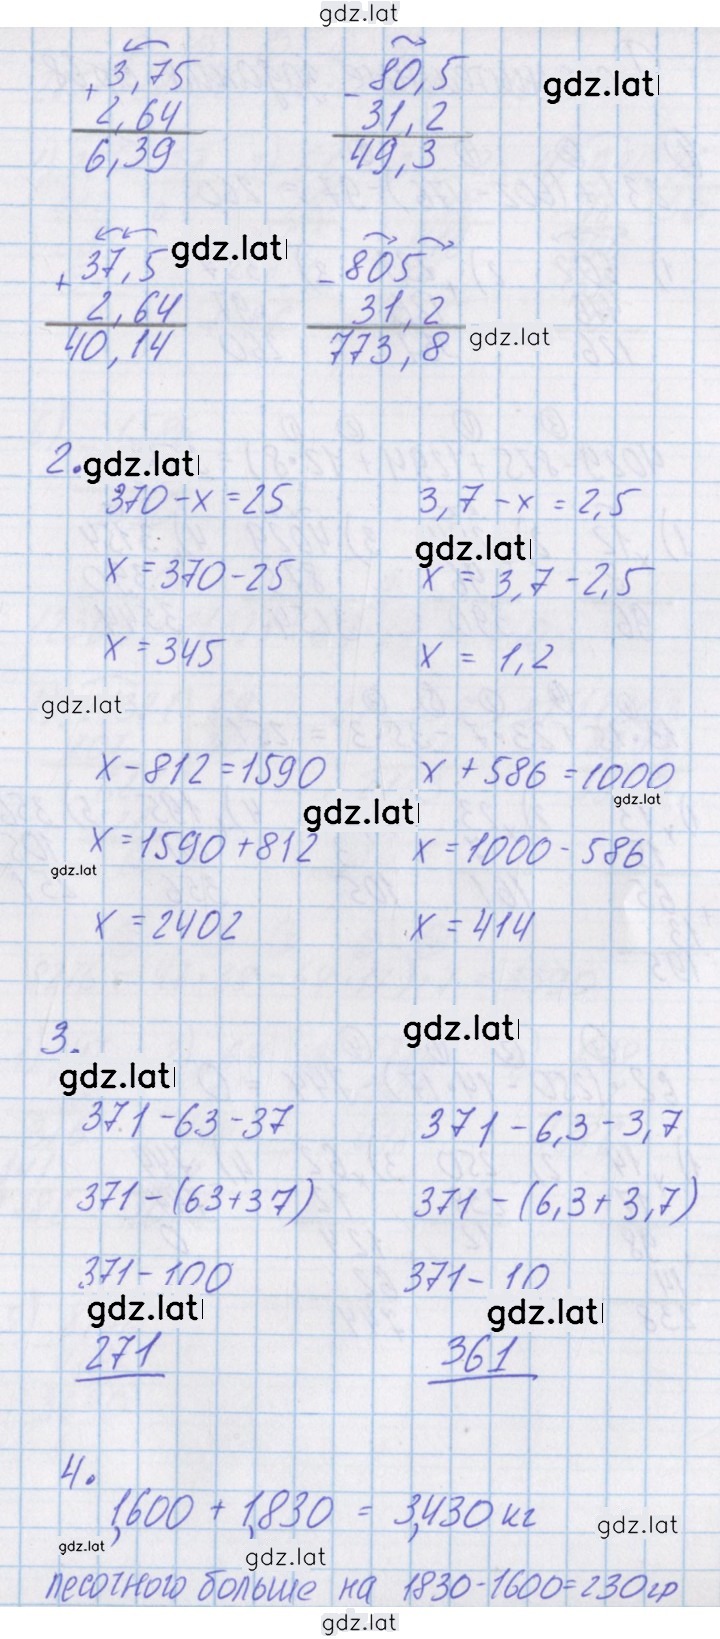 gdz.lat
3,75 80,5
+ -
2,64 31,2 gdz.lat
6,39 49,3
37,5 gdz.lat 805
+ -
2,64 31,2
40,14 773,8 gdz.lat
2. gdz.lat
370-x=25 3,7-x=2,5
gdz.lat
x=370-25 x=3,7-2,5
x=345 x=1,2
gdz.lat
x-812=1590 x+586=1000
gdz.lat gdz.lat
x=1590+812 x=1000-586
gdz.lat
x=2402 x=414
gdz.lat
3.
gdz.lat
371-63-37 371-6,3-3,7
371-(63+37) 371-(6,3+3,7)
371-100 371-10
gdz.lat gdz.lat
271 361
4.
1,600 + 1,830 = 3,430 кг
gdz.lat gdz.lat gdz.lat
песочного больше на 1830-1600=230гр
gdz.lat